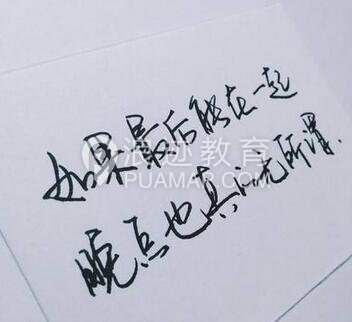 如果最后能在一起
晚点也真的无所谓.
浪迹教育
PUAMAP.COM